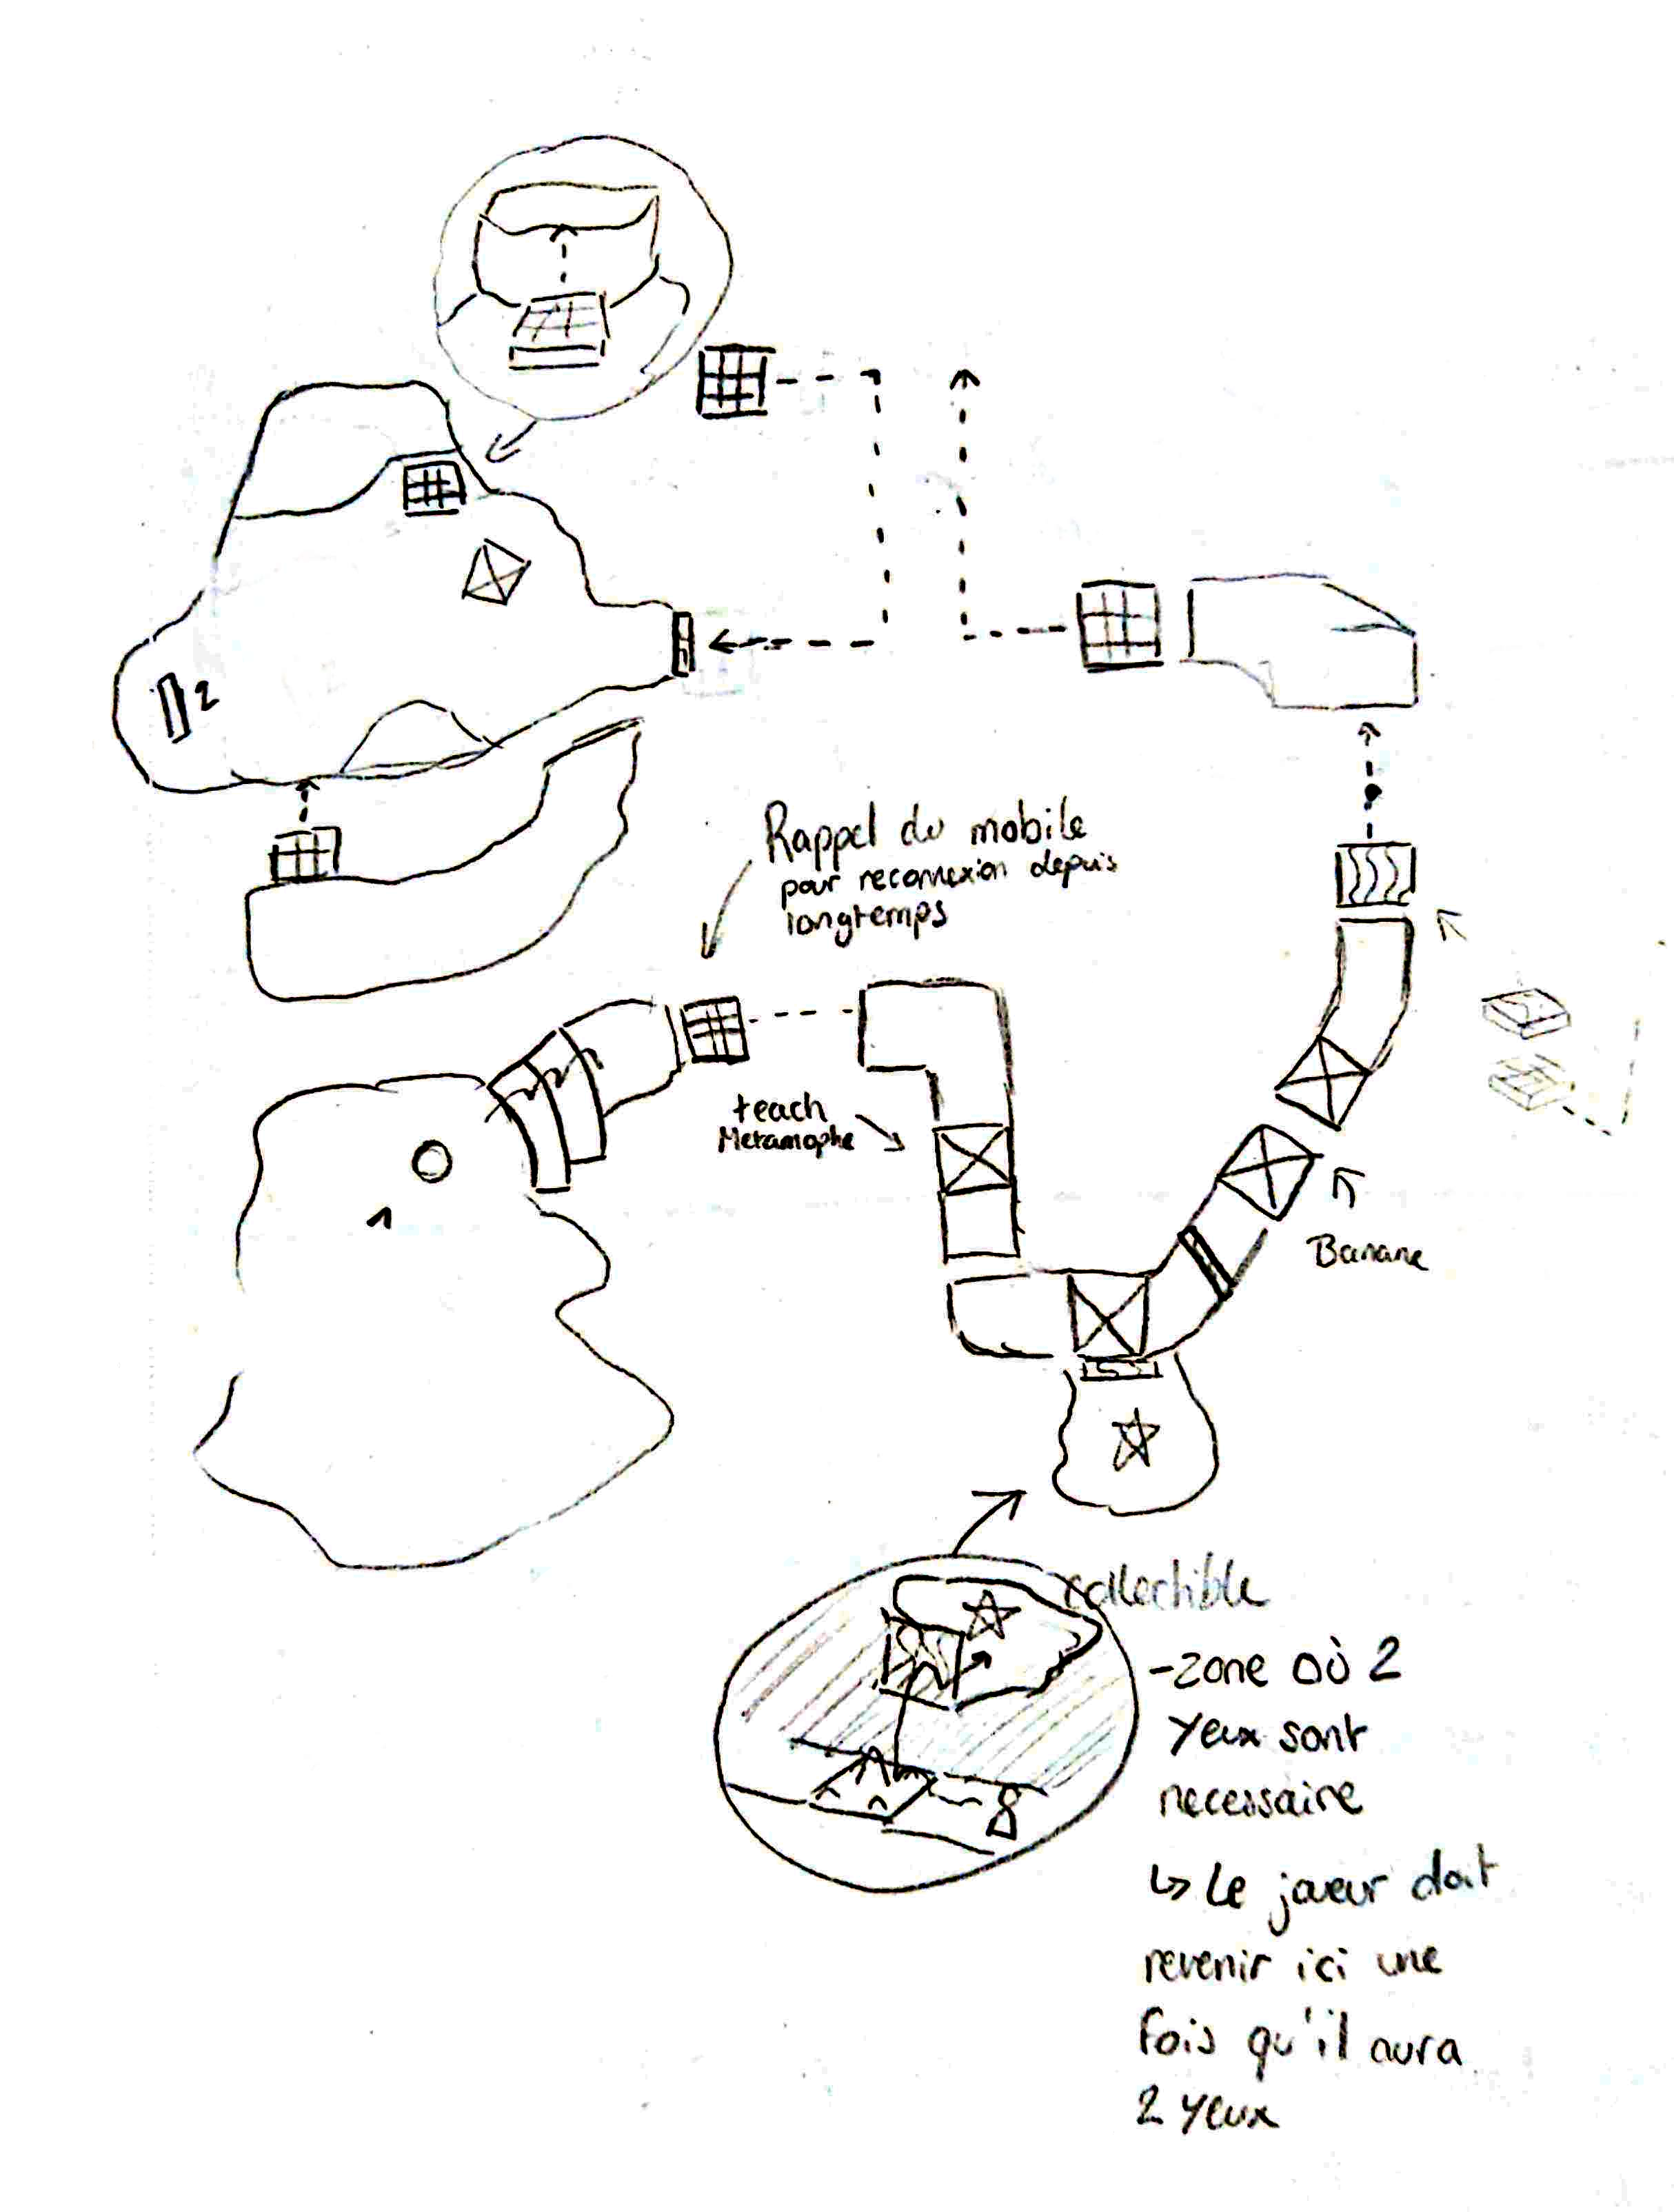 2
Rappel du mobile
pour reconnexion depuis
longtemps
teach
Metamophe
1
Banane
collectible
-zone où 2
yeux sont
necessaire
↳ Le joueur doit
revenir ici une
fois qu'il aura
2 yeux